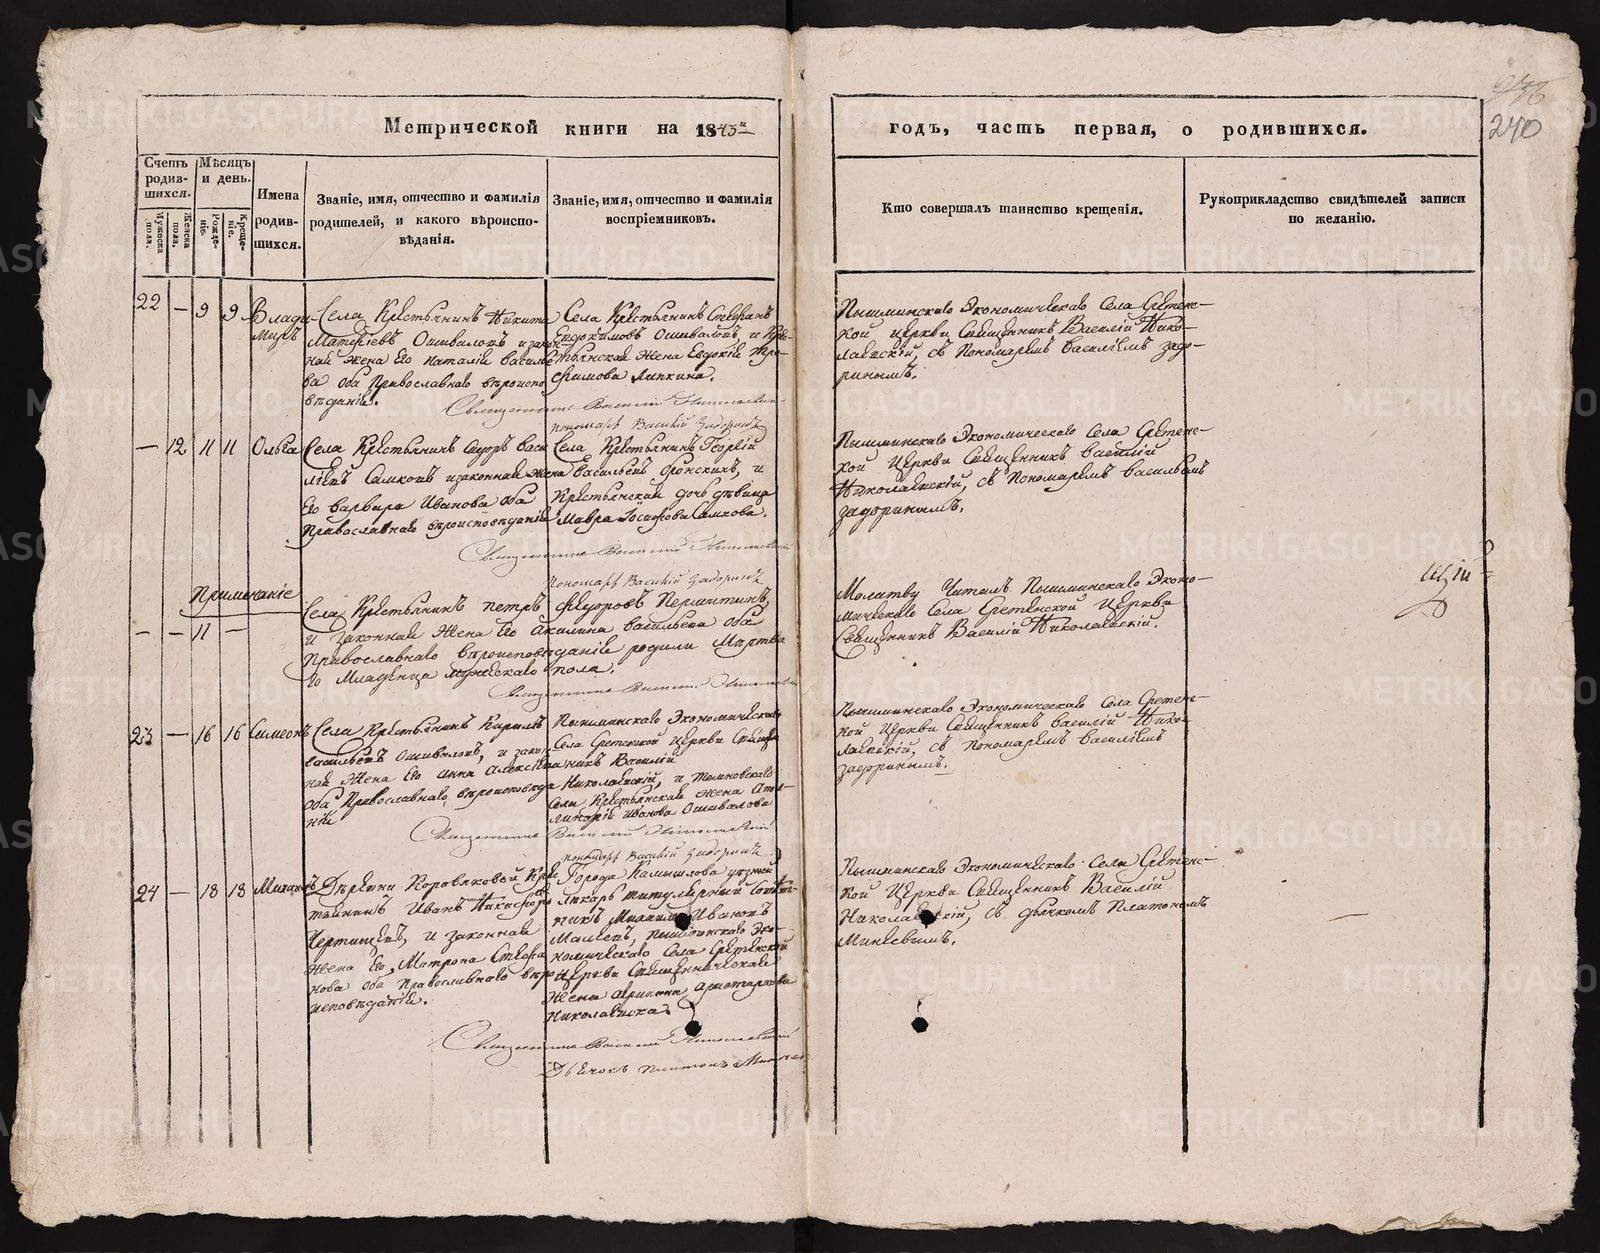 Метрической книги на 1843й
годъ, часть первая, о родившихся.
240
Счетъ родив-шихся.
Мужеска пола.
Женска пола.
Мѣсяцъ и день.
Рожде-нiе.
Креще-нiе.
Имена родив-шихся.
Званiе, имя, отчество и фамилiя
родителей, и какого вѣроиспо-
вѣданiя.
Званiе, имя, отчество и фамилiя
воспрiемниковъ.
Кто совершалъ таинство крещенiя.
Рукоприкладство свидѣтелей записи
по желанiю.
22 — 9 9 Влади-
миръ
Села Крестьянинъ Никита
Матфѣевъ Ошиваловъ и закон
ная жена его Наталiя Василье
ва оба Православнаго вѣроиспо
вѣданiя.
Села Крестьянинъ Стефанъ
Евдокимовъ Ошиваловъ, и Кре-
стьянская жена Евдокiя Тро-
фимова Липкина.
Священникъ Василiй Николаевскiй
пономарь Василiй Задоринъ
Пышминскаго Экономическаго Села Сретенс-
кой церкви Священникъ Василiй Нико-
лаевскiй, съ Пономаремъ Василiемъ Задо-
ринымъ.
— 12 11 11 Ольга
Села Крестьянинъ Сидоръ Васи
лiевъ Самковъ и законная жена
Его Варвара Иванова оба
Православнаго вѣроисповѣданiя
Села Крестьянинъ Георгiй
Васильевъ
Крестьянская дочь дѣвица
Мавра Iосифова Самкова.
Священникъ Василiй Николаевскiй
Пономарь Василiй Задоринъ
Пышминскаго Экономическаго Села Сретенс-
кой Церкви Священникъ Василiй
Николаевскiй, съ Пономаремъ Васильемъ
Задоринымъ.
Примечанiе
— — 11 —
Села Крестьянинъ Петръ Федоровъ Першитинъ
и законная жена его Акилина Васильева оба
Православнаго вѣроисповѣданiя родили Мертва
го Младенца мужескаго пола.
Священникъ Василiй Николаевскiй
Молитву Читалъ Пышминскаго Эконо-
мическаго Села Сретенской Церкви
Священникъ Василiй Николаевскiй.
23 — 16 16 Симеонъ
Села Крестьянинъ Кирилъ
Васильевъ Ошиваловъ, и закон-
ная жена Его Анна Алексѣева
оба Православнаго вѣроисповѣда
нiя
Пышминскаго Экономическаго
Села Сретенской Церкви Священ
никъ Василiй
Николаевскiй, и
Села Крестьянская жена Апол-
линарiя Иванова Ошивалова
Священникъ Василiй Николаевскiй
пономарь Василiй Задоринъ
Пышминскаго Экономическаго Села Сретенс-
кой Церкви Священникъ Василiй Нико-
лаевскiй, съ пономаремъ Василiемъ
Задоринымъ.
24 — 18 18 Михаилъ
Деревни Коровяковой Кре
стьянинъ Иванъ Никифоро
Чертищевъ, и законная
жена Его, Матрона Стефа
нова оба Православнаго вѣро
исповѣданiя.
Города Камышлова уездный
лекарь титулярный Совѣт-
никъ Михаилъ Ивановъ
Маслевъ, Пышминскаго Эко-
номическаго Села Сретенской
Церкви Священническая
Жена
Николаевская.
Священникъ Василiй Николаевскiй
Дьячокъ Платонъ
Пышминскаго Экономическаго Села Сретенс-
кой Церкви Священникъ Василiй
Николаевскiй, съ дьячкомъ Платономъ
Минѣевымъ.
METRIKI.GASO-URAL.RU